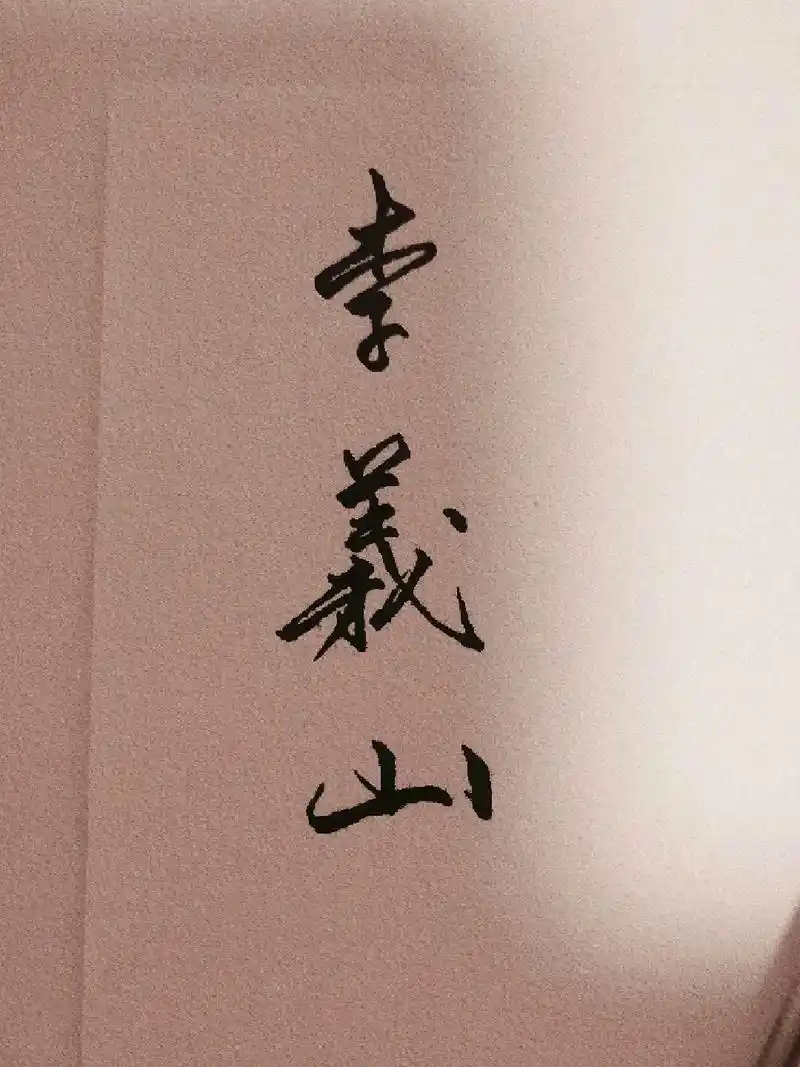 李義山